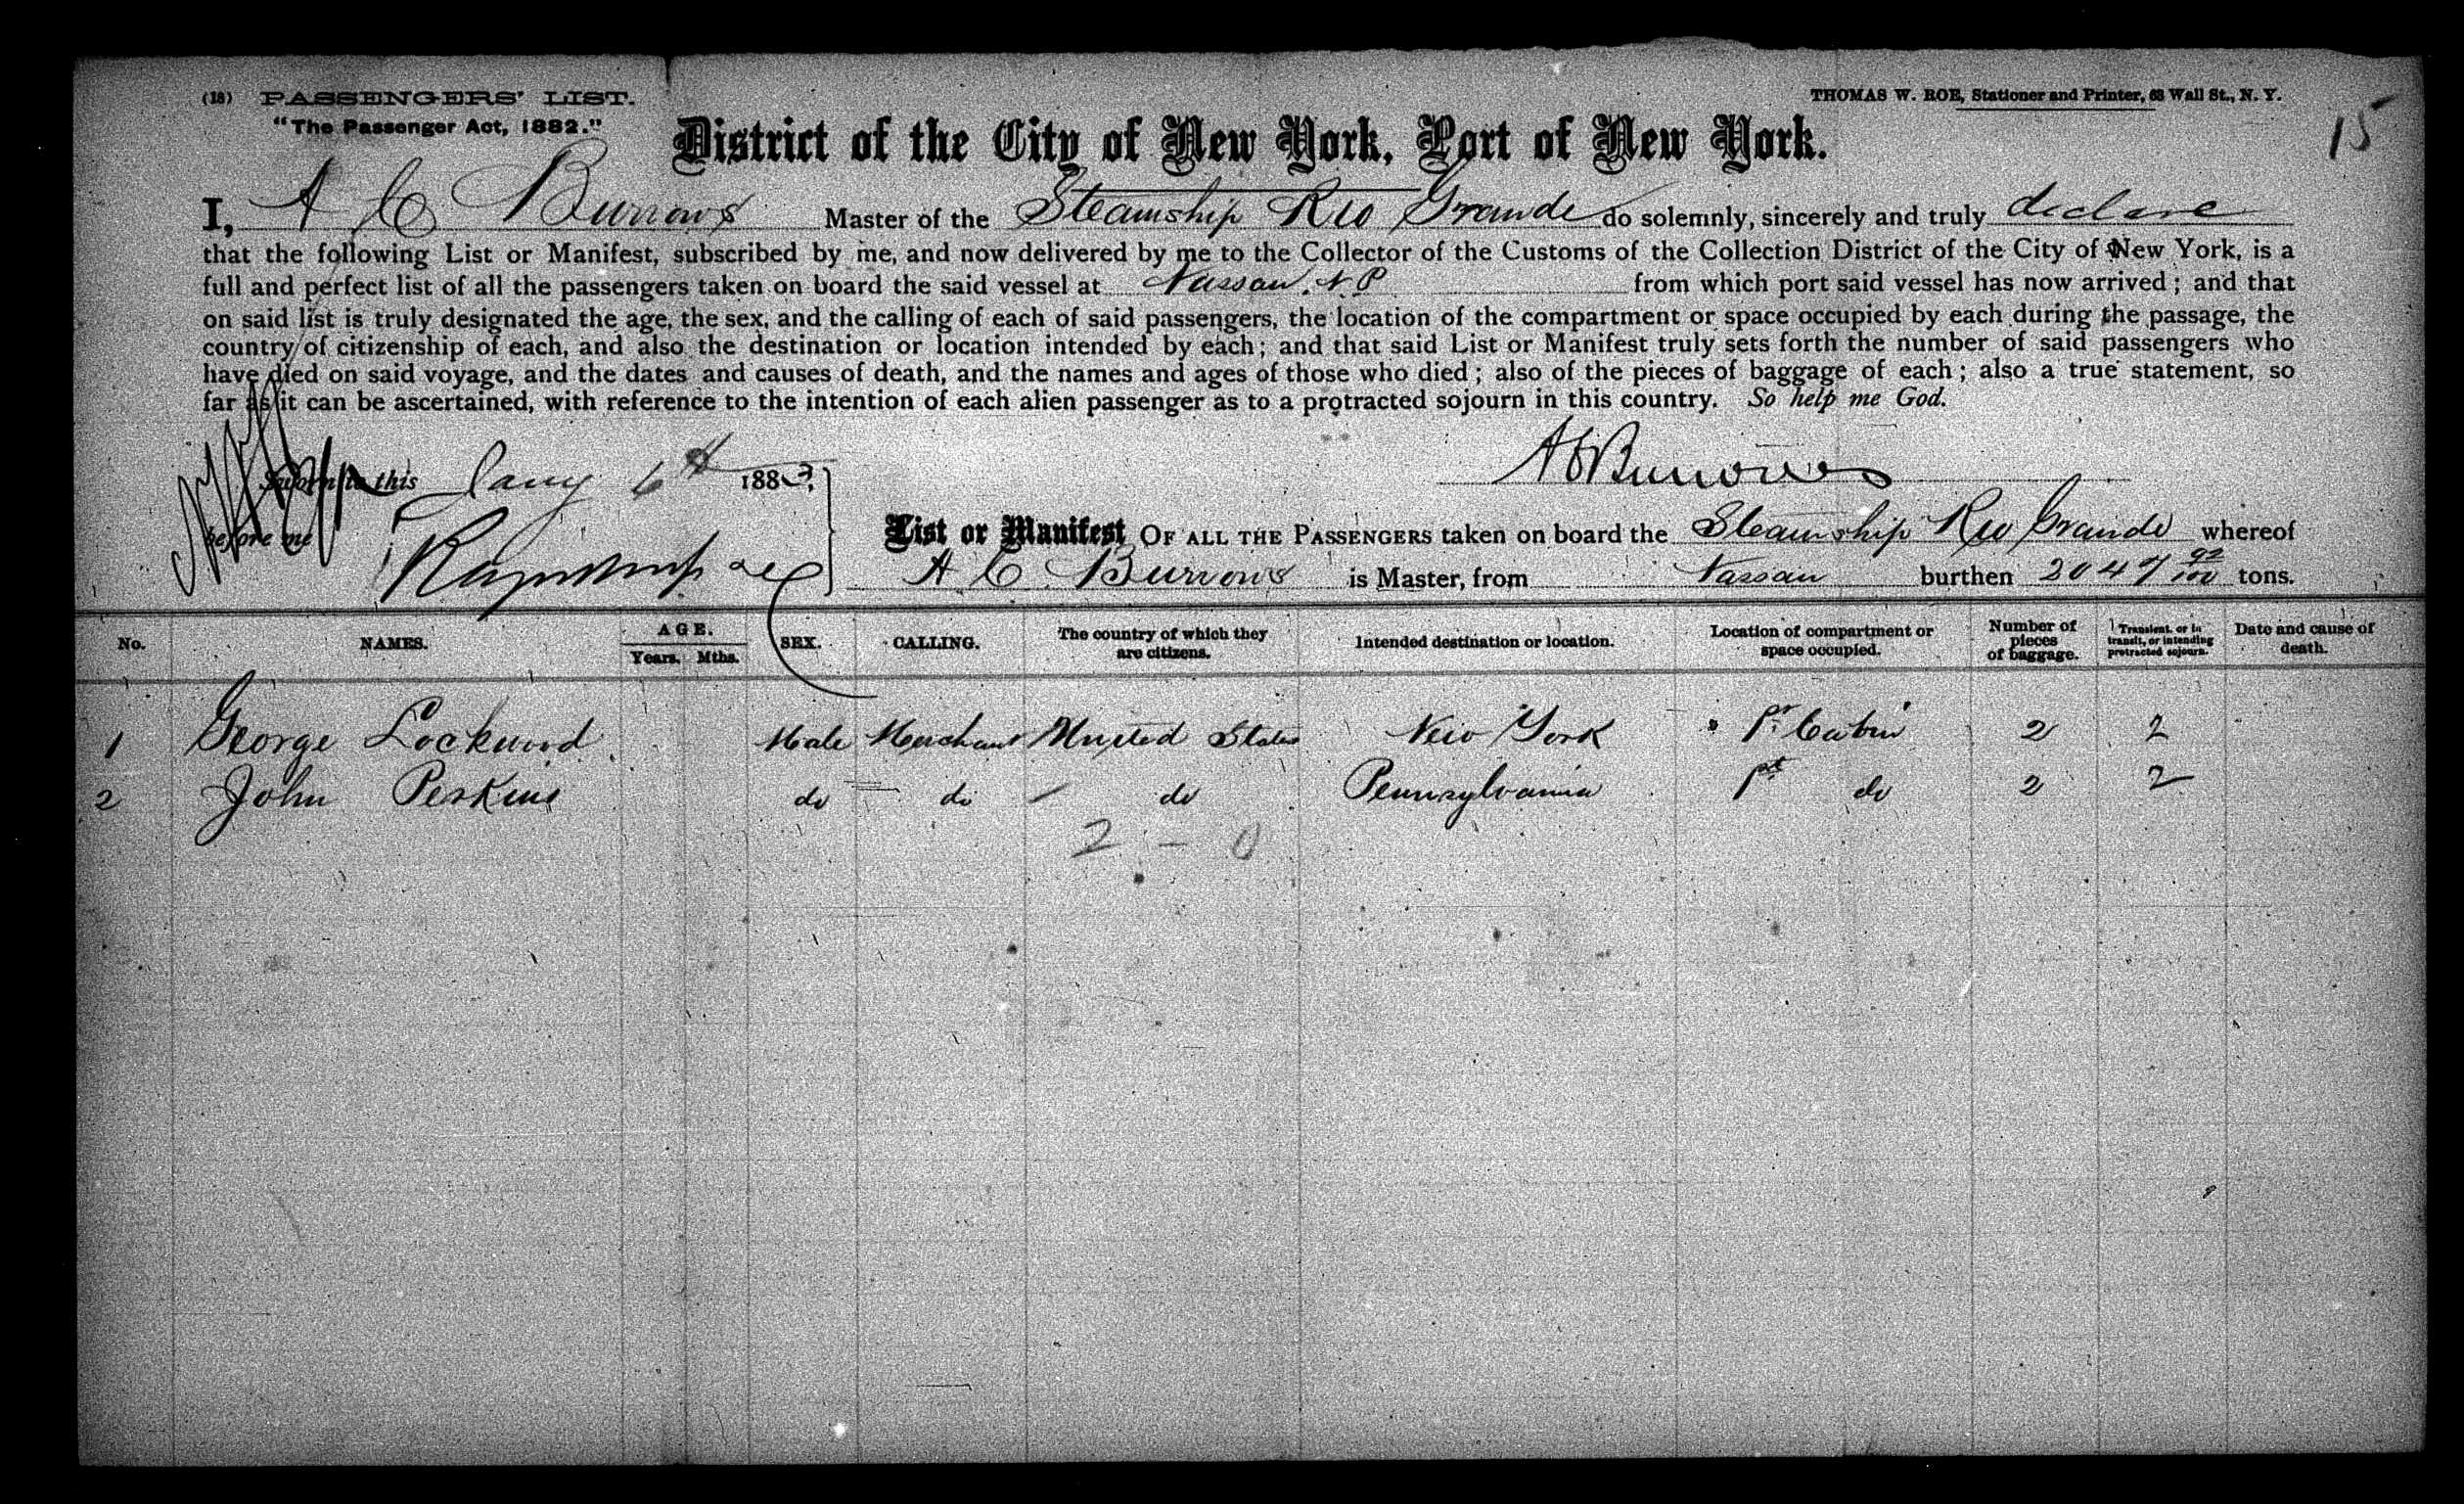 (18) PASSENGERS' LIST.
THOMAS W. ROE, Stationer and Printer, 63 Wall St., N. Y.
"The Passenger Act, 1882."
15
District of the City of New York, Port of New York.
I, A C Burrows Master of the Steamship Rio Grande do solemnly, sincerely and truly declare
that the following List or Manifest, subscribed by me, and now delivered by me to the Collector of the Customs of the Collection District of the City of New York, is a
full and perfect list of all the passengers taken on board the said vessel at Nassau. N. P from which port said vessel has now arrived; and that
on said list is truly designated the age, the sex, and the calling of each of said passengers, the location of the compartment or space occupied by each during the passage, the
country of citizenship of each, and also the destination or location intended by each; and that said List or Manifest truly sets forth the number of said passengers who
have died on said voyage, and the dates and causes of death, and the names and ages of those who died; also of the pieces of baggage of each; also a true statement, so
far as it can be ascertained, with reference to the intention of each alien passenger as to a protracted sojourn in this country. So help me God.
Sworn to this Jany 6th 1883,
A C Burrows
before me
List or Manifest OF ALL THE PASSENGERS taken on board the Steamship Rio Grande whereof
A C Burrows is Master, from Nassau burthen 2047 92/100 tons.
No. NAMES. AGE. Years. Mths. SEX. CALLING. The country of which they are citizens. Intended destination or location. Location of compartment or space occupied. Number of pieces of baggage. Transient, or in transit, or intending protracted sojourn. Date and cause of death.
1 George Lockwood Male Merchant United States New York 1st Cabin 2 2
2 John Perkins do do do Pennsylvania 1st do 2 2
2 - 0